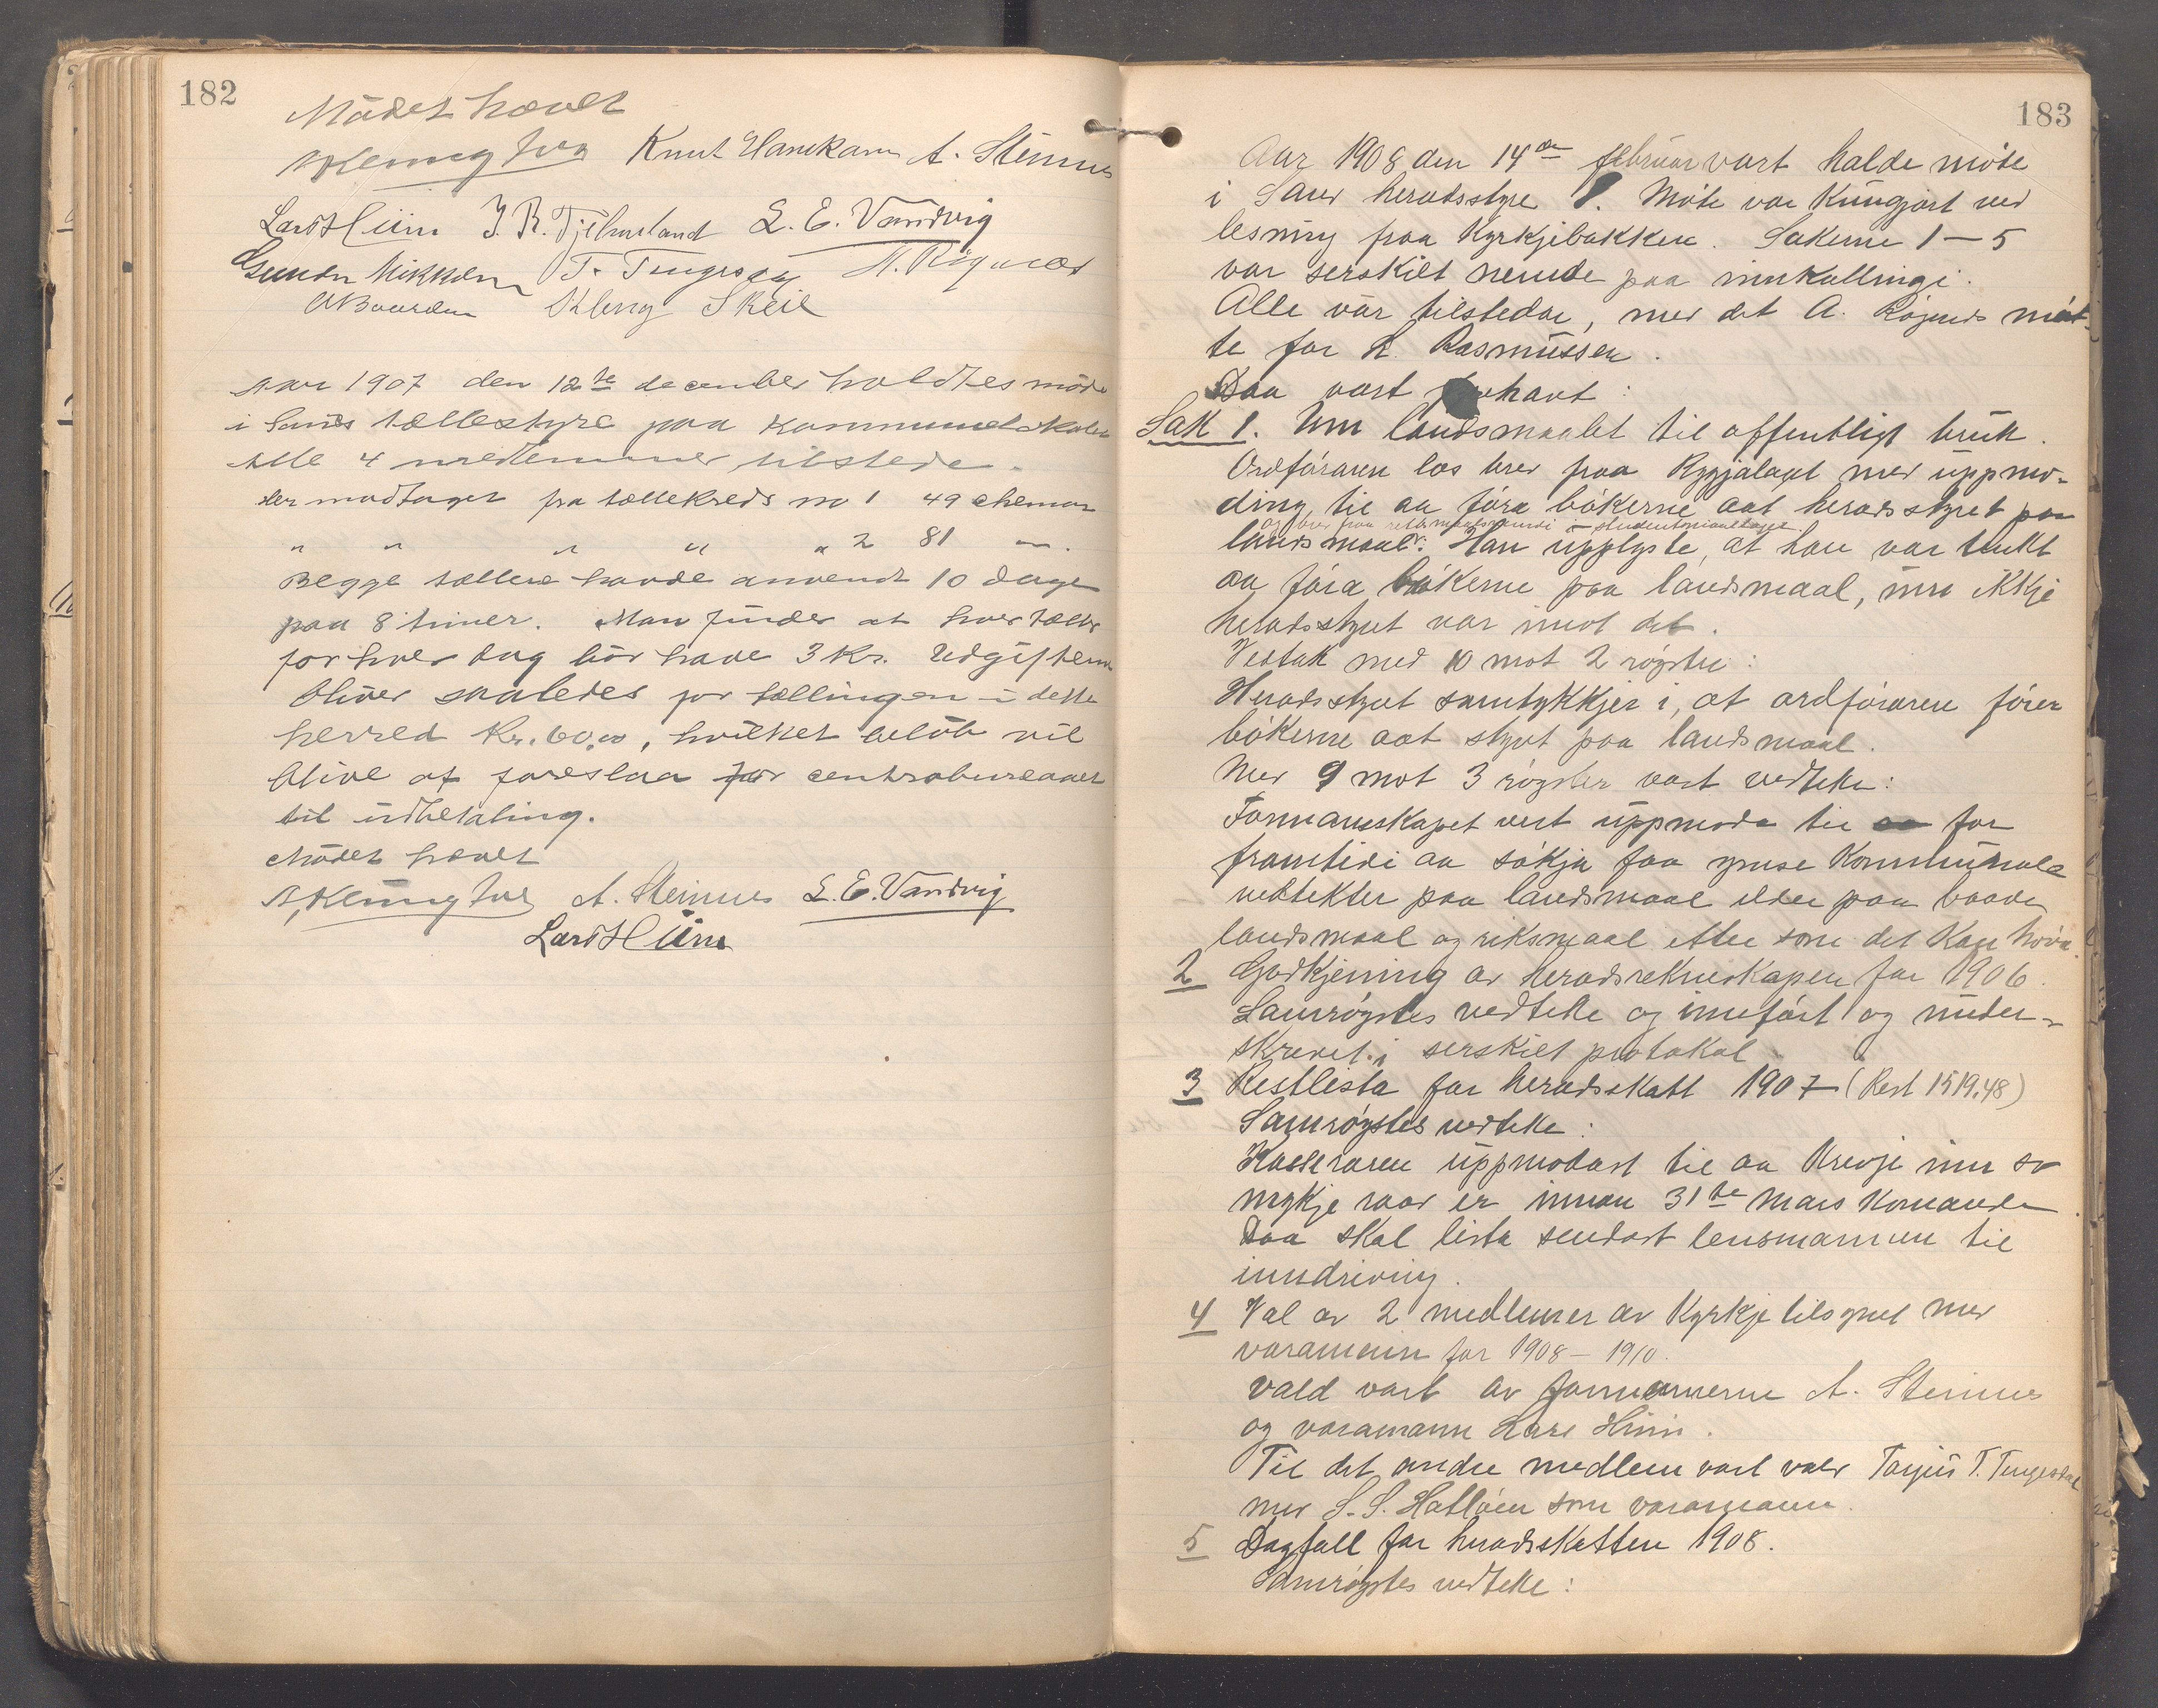 182
Mödet hævet
Knut Hanekam A. Steinnes
Lars Hiim J. R. Tjelmeland L. E. Vandvig
Gunder Mikkelsen T. Tengesdal A. Rögnes
Kleng Skeie
Aar 1907 den 12te december holdtes möde
i Sands tællestyre paa kommunelokalet
Alle 4 medlemmer tilstede.
Der modtages fra tællekreds no 1 49 skemar
" " " " " 2 81 "
Begge tællere havde anvendt 10 dage
paa 8 timer. Man finder at hver tæller
for hver dag bör have 3 Kr. Udgifterne
bliver saaledes for tællingen i dette
herred Kr. 60,00, hvilket belöb vil
blive at foreslaa for centralbureauet
til udbetaling.
Mödet hævet
A. Steinnes L. E. Vandvig
Lars Hiim
183
Aar 1908 den 14de februar vart halde möte
i Sand heradsstyre. Möte var kungjort ved
lesning fraa Kyrkjebakken. Sakerne 1–5
var serskilt nemde paa innkallingi.
Alle var tilstedar, med det A. Rögnes möt-
te for L. Rasmussen.
Daa vart forhavt:
Sak 1. Um landsmaalet til offentligt bruk.
Ordföraren las brev fraa Rygjalaget med uppmo-
ding til aa föra bökerne aat heradsstyret paa
og brev fraa studentmaallaget
landsmaal. Han upplyste, at han var tenkt
aa föra bökerne paa landsmaal, um ikkje
heradsstyret var imot det.
Vestak med 10 mot 2 röyster:
Heradsstyret samtykkjer i, at ordföraren förer
bökerne aat styret paa landsmaal.
Med 9 mot 3 röyster vart vedteke:
Formannskapet vert uppmoda til aa for
framtidi aa sökja faa ymse kommunale
vedtekter paa landsmaal elder paa baade
landsmaal og riksmaal etter som det kan höva.
2 Godkjenning av heradsrekneskapen for 1906.
Samröystes vedteke og innfört og under-
skrevet i serskilt protokol.
3 Restlista for heradsskatt 1907 (Rest 1519.48)
Samröystes vedteke:
Kasseraren uppmodast til aa krevje inn so
mykje raad er innan 31te mars komande
Daa skal lista sendast lensmannen til
inndriving.
4 Val av 2 medlemer av Kyrkjetilsynet med
varamenn for 1908–1910.
Vald vart av formennerne A. Steinnes
og varamann Lars Hiim.
Til det andre medlem vart vald Tarjei T. Tengesdal
med S. S. Hatlöen som varamann.
5 Dagfall for heradsskatten 1908.
Samröystes vedteke: